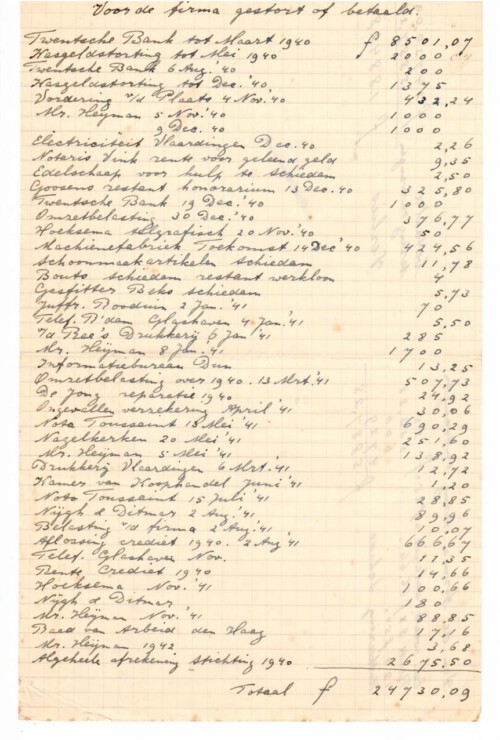 Voor de firma gestort of betaald.
Twentsche Bank tot Maart 1940 f 8501,07
Kasgeldstorting tot Mei 1940 2000
Twentsche Bank 6 Aug '40 200
Kasgeldstorting tot Dec. '40 1375
Vordering v/d Plaats 4 Nov. '40 432,24
Mr. Heyman 5 Nov. '40 1000
9 Dec. '40 1000
Electriciteit Vlaardingen Dec. 40 2,26
Notaris Vink rente voor geleend geld 9,35
Edelschaap voor hulp te Schiedam 2,50
Goosens restant honorarium 13 Dec. 40 325,80
Twentsche Bank 19 Dec. '40 1000
Omzetbelasting 30 Dec. '40 376,77
Hoeksema telegrafisch 20 Nov. '40 50
Machienefabriek Toekomst 14 Dec '40 424,56
Schoonmaakartikelen Schiedam 11,78
Bouts Schiedam restant werkloon 4
Gasfitter Beks Schiedam 5,73
Juffr. Nooduin 2 Jan. '41 70
Telef. R'dam Glashaven 4 Jan. '41 5,50
v/d Ree's Drukkerij 6 Jan '41 285
Mr. Heyman 8 Jan. '41 1700
Informatiebureau Dun 13,25
Omzetbelasting over 1940. 13 Mrt. '41 507,73
De Jong reparatie 1940 24,92
Ongevallen verzekering April '41 30,06
Nota Toussaint 15 Mei '41 690,29
Nagelkerken 20 Mei '41 251,60
Mr. Heyman 5 Mei '41 138,92
Drukkerij Vlaardingen 6 Mrt. '41 12,72
Kamer van Koophandel Juni '41 1,20
Nota Toussaint 15 Juli '41 28,85
Nijgh & Ditmar 2 Aug. '41 89,96
Belasting v/d firma 2 Aug. '41 10,07
Aflossing crediet 1940. 2 Aug '41 666,67
Telef. Glashaven Nov. 11,35
Rente Crediet 1940 14,66
Hoeksema Nov. '41 100,66
Nijgh & Ditmar 130
Mr. Heyman Nov. '41 88,85
Raad van Arbeid den Haag 17,16
Mr. Heyman 1942 3,68
Algeheele afrekening Stichting 1940 2675.50
Totaal f 24730,09